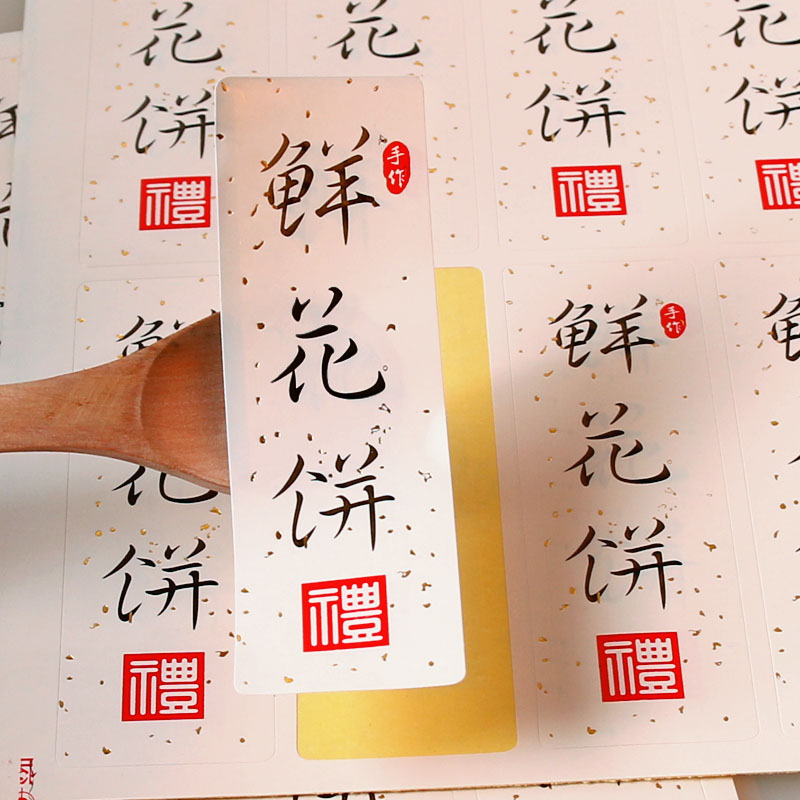 花
饼
禮
花
饼
花
饼
禮
花
饼
禮
鲜
手作
花
饼
禮
鲜
花
饼
禮
鲜
手作
花
饼
禮